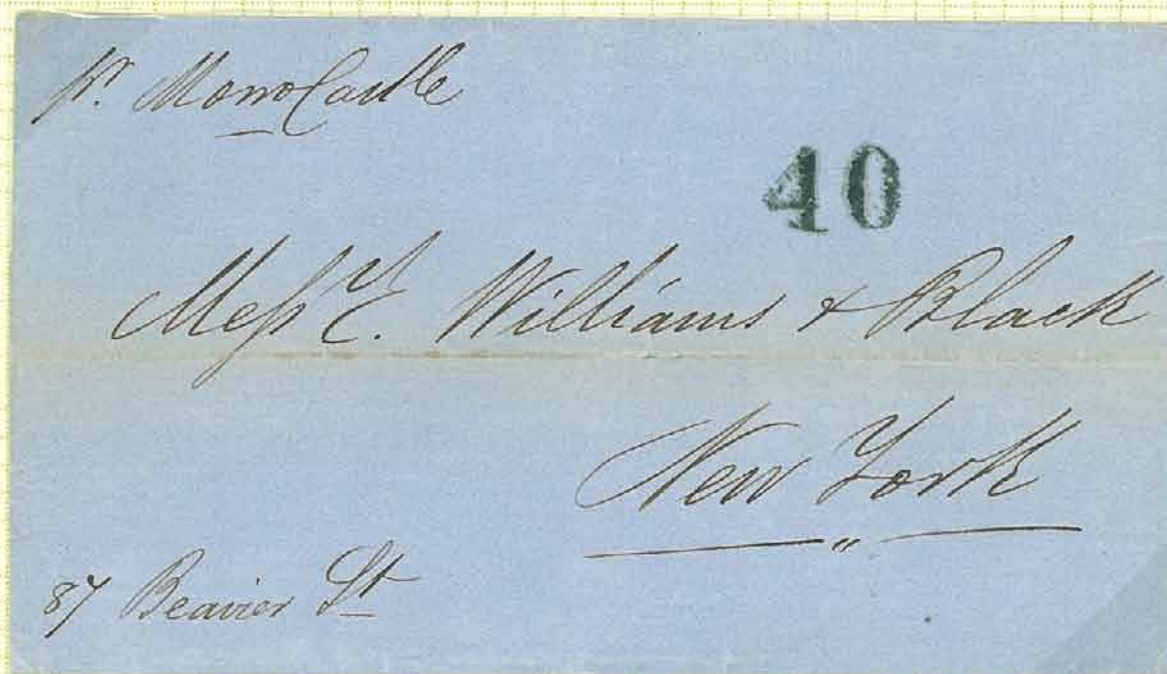 pr. Morro Castle
40
Messrs. Williams & Black
New York
87 Beavier St